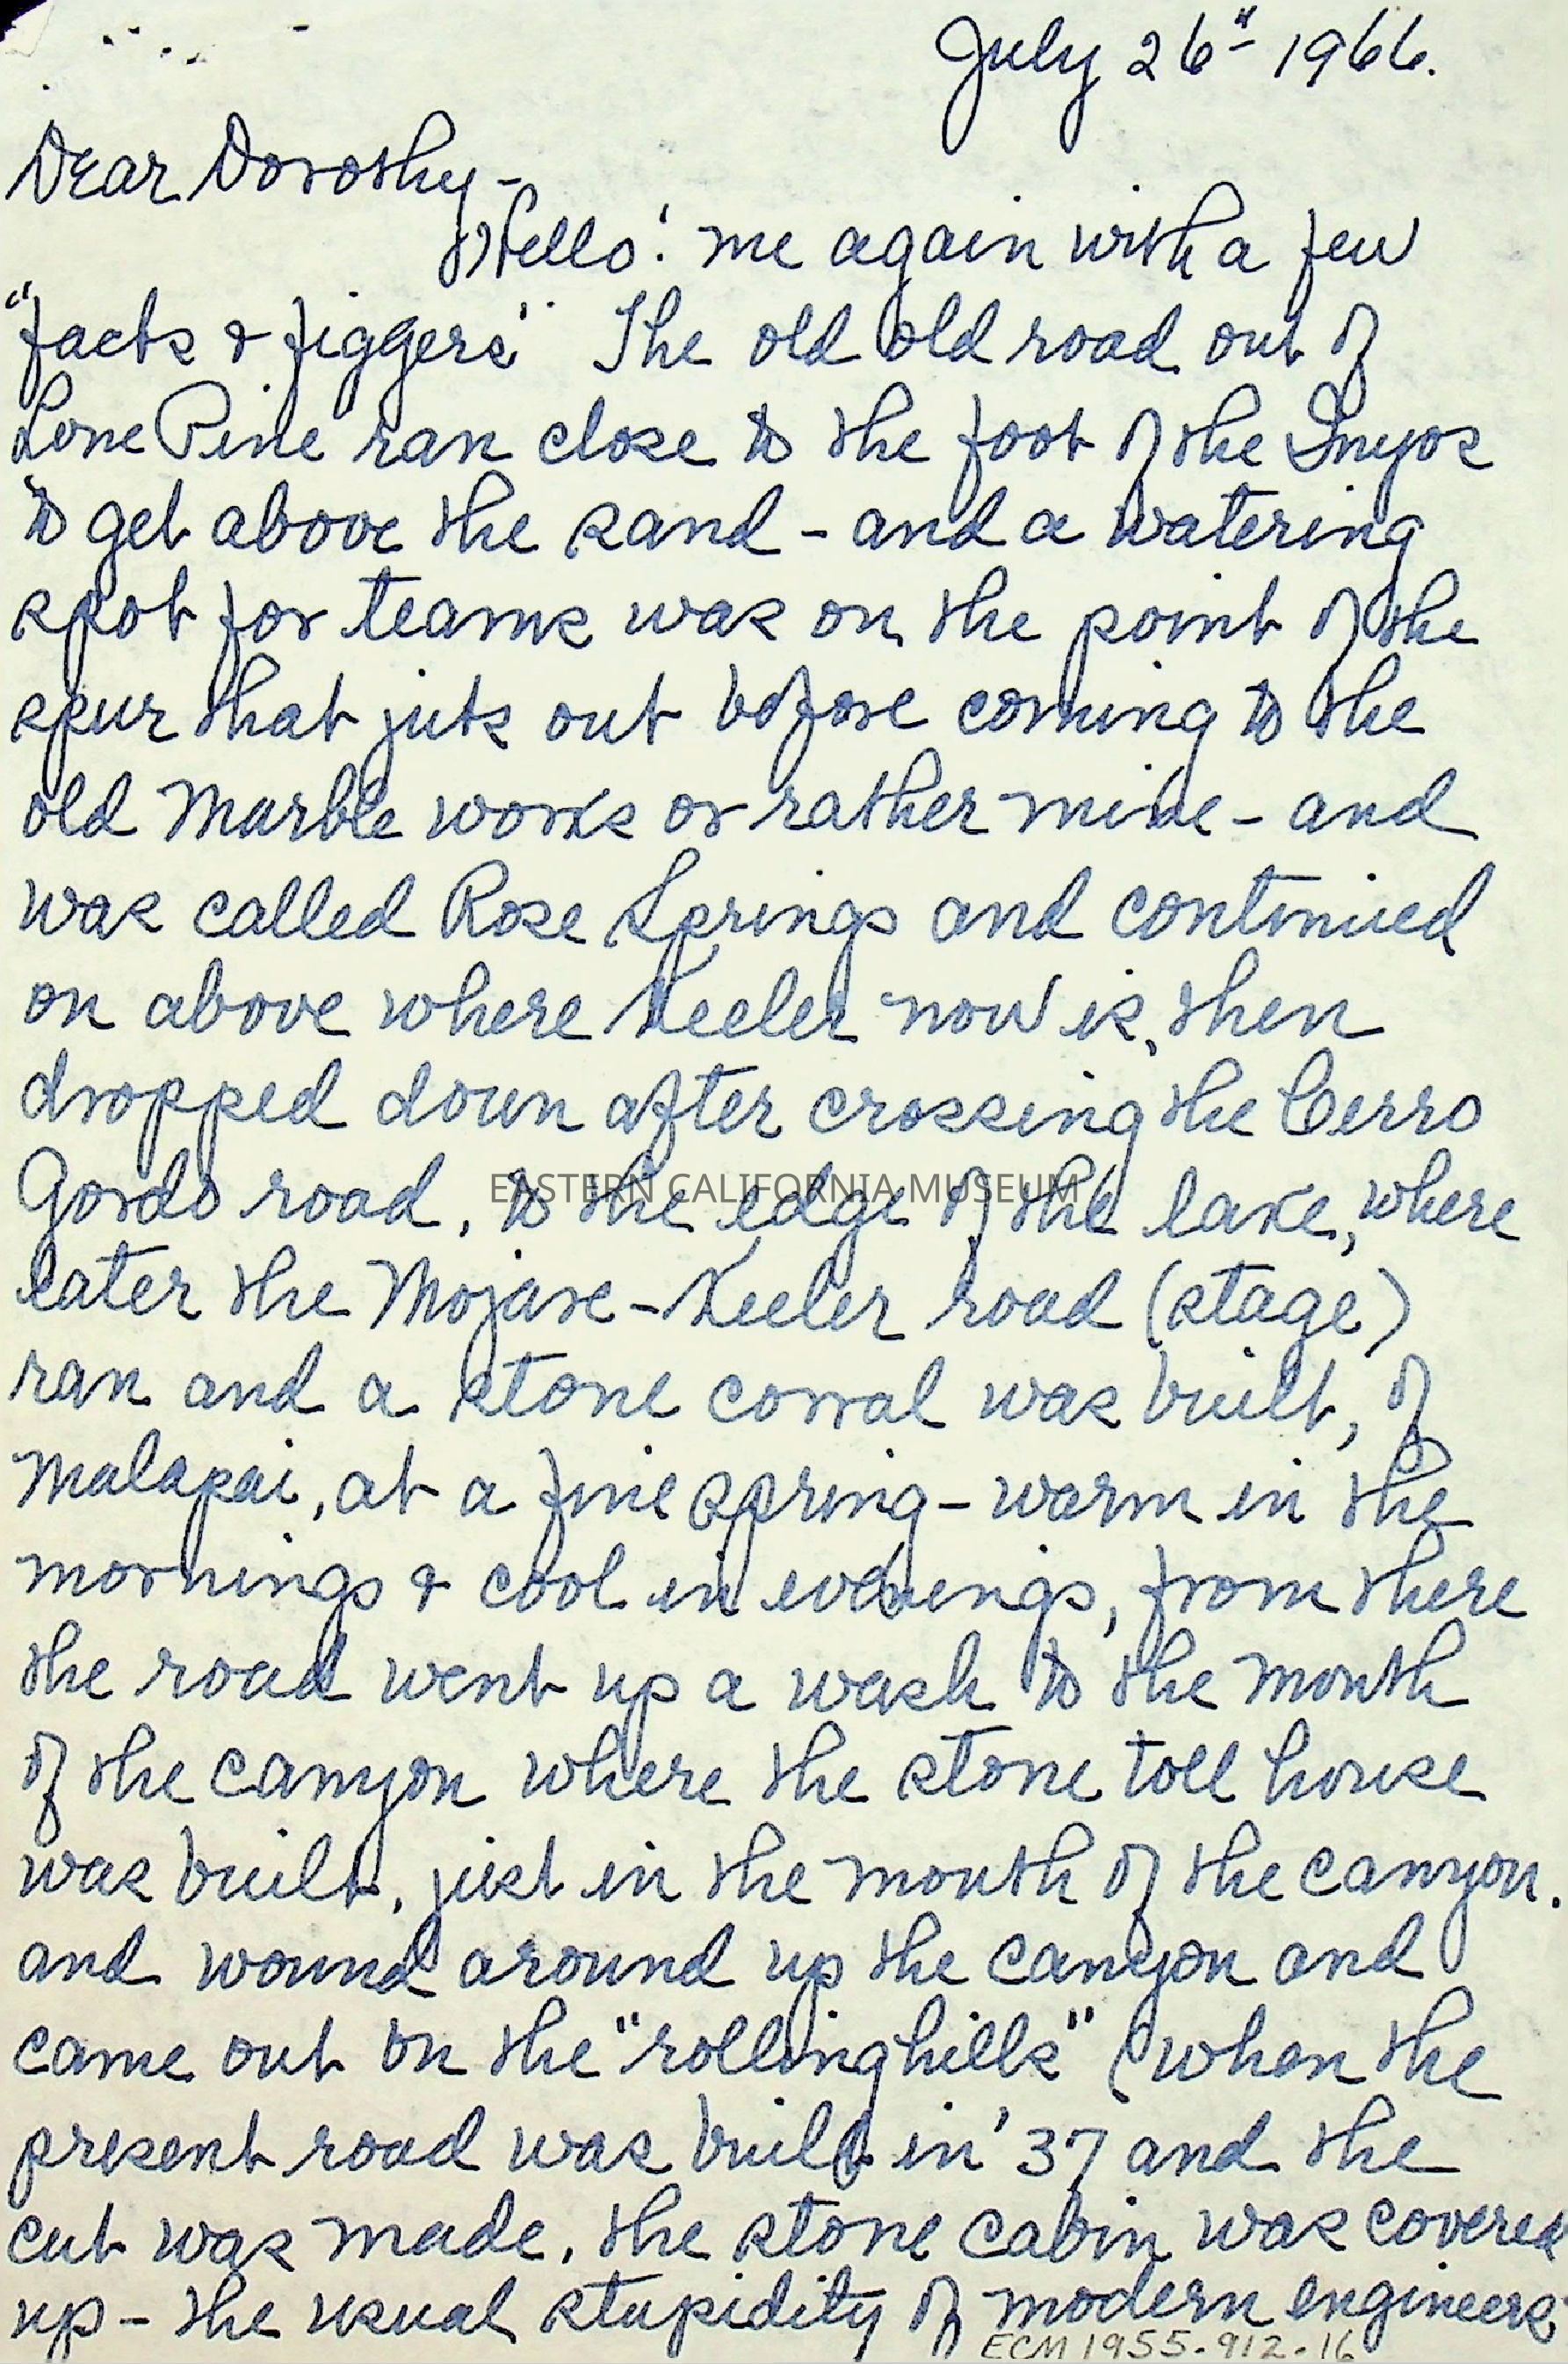 July 26" 1966.
Dear Dorothy -
Hello! me again with a few
"facts & figgers" The old old road out of
Lone Pine ran close to the foot of the Inyos
to get above the sand - and a watering
spot for teams was on the point of the
spur that juts out before coming to the
old Marble works or rather mine - and
was called Rose Springs and continued
on above where Keeler now is, then
dropped down after crossing the Cerro
Gordo road, to the edge of the lake, where
EASTERN CALIFORNIA MUSEUM
later the Mojave - Keeler road (stage)
ran and a stone corral was built, of
Malapai, at a fine spring - warm in the
mornings & cool in evenings, from there
the road went up a wash to the mouth
of the canyon where the stone toll house
was built, just in the mouth of the canyon.
and wound around up the canyon and
came out on the "rolling hills" (when the
present road was built in '37 and the
cut was made, the stone cabin was covered
up - the usual stupidity of modern engineers
ECM 1955.912.16